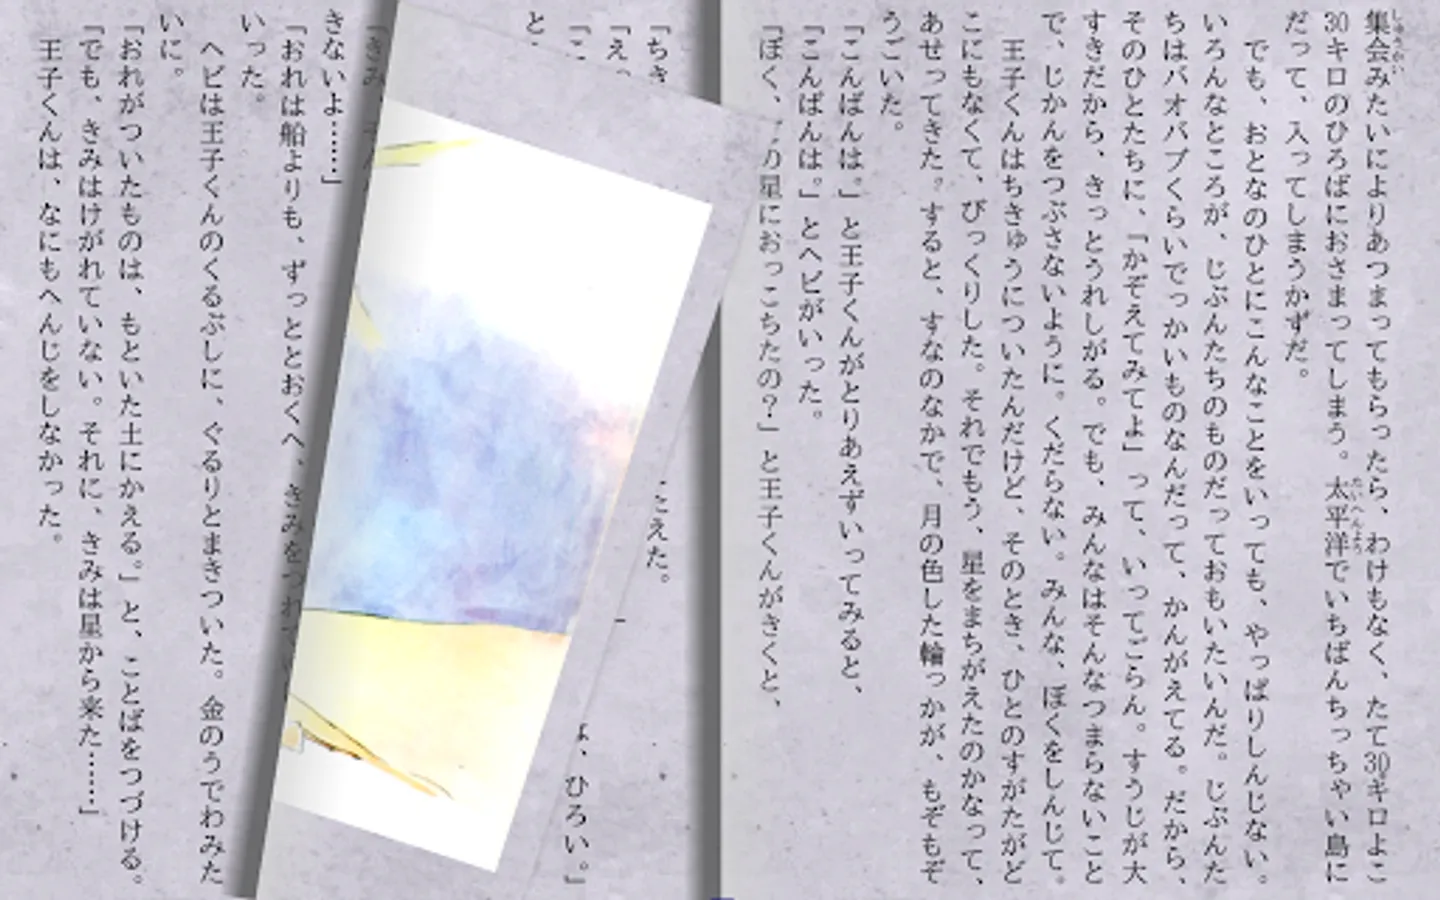 集会みたいによりあつまってもらったら、わけもなく、たて30キロよこ
30キロのひろばにおさまってしまう。太平洋でいちばんちっちゃい島に
だって、入ってしまうかずだ。
でも、おとなのひとにこんなことをいっても、やっぱりしんじない。
いろんなところが、じぶんたちのものだっておもいたいんだ。じぶんた
ちはバオバブくらいでっかいものなんだって、かんがえてる。だから、
そのひとたちに、「かぞえてみてよ」って、いってごらん。すうじが大
すきだから、きっとうれしがる。でも、みんなはそんなつまらないこと
で、じかんをつぶさないように。くだらない。みんな、ぼくをしんじて。
王子くんはちきゅうについたんだけど、そのとき、ひとのすがたがど
こにもなくて、びっくりした。それでもう、星をまちがえたのかなって、
あせってきた。すると、すなのなかで、月の色した輪っかが、もぞもぞ
うごいた。
「こんばんは。」と王子くんがとりあえずいってみると、
「こんばんは。」とヘビがいった。
「ぼく、の星におっこちたの？」と王子くんがきくと、
「ちき こえた。
「え、
「こ よ、ひろい。」
と、
「きみ、
きないよ……」
「おれは船よりも、ずっととおくへ、きみをつれて
いった。
ヘビは王子くんのくるぶしに、ぐるりとまきついた。金のうでわみた
いに。
「おれがついたものは、もといた土にかえる。」と、ことばをつづける。
「でも、きみはけがれていない。それに、きみは星から来た……」
王子くんは、なにもへんじをしなかった。